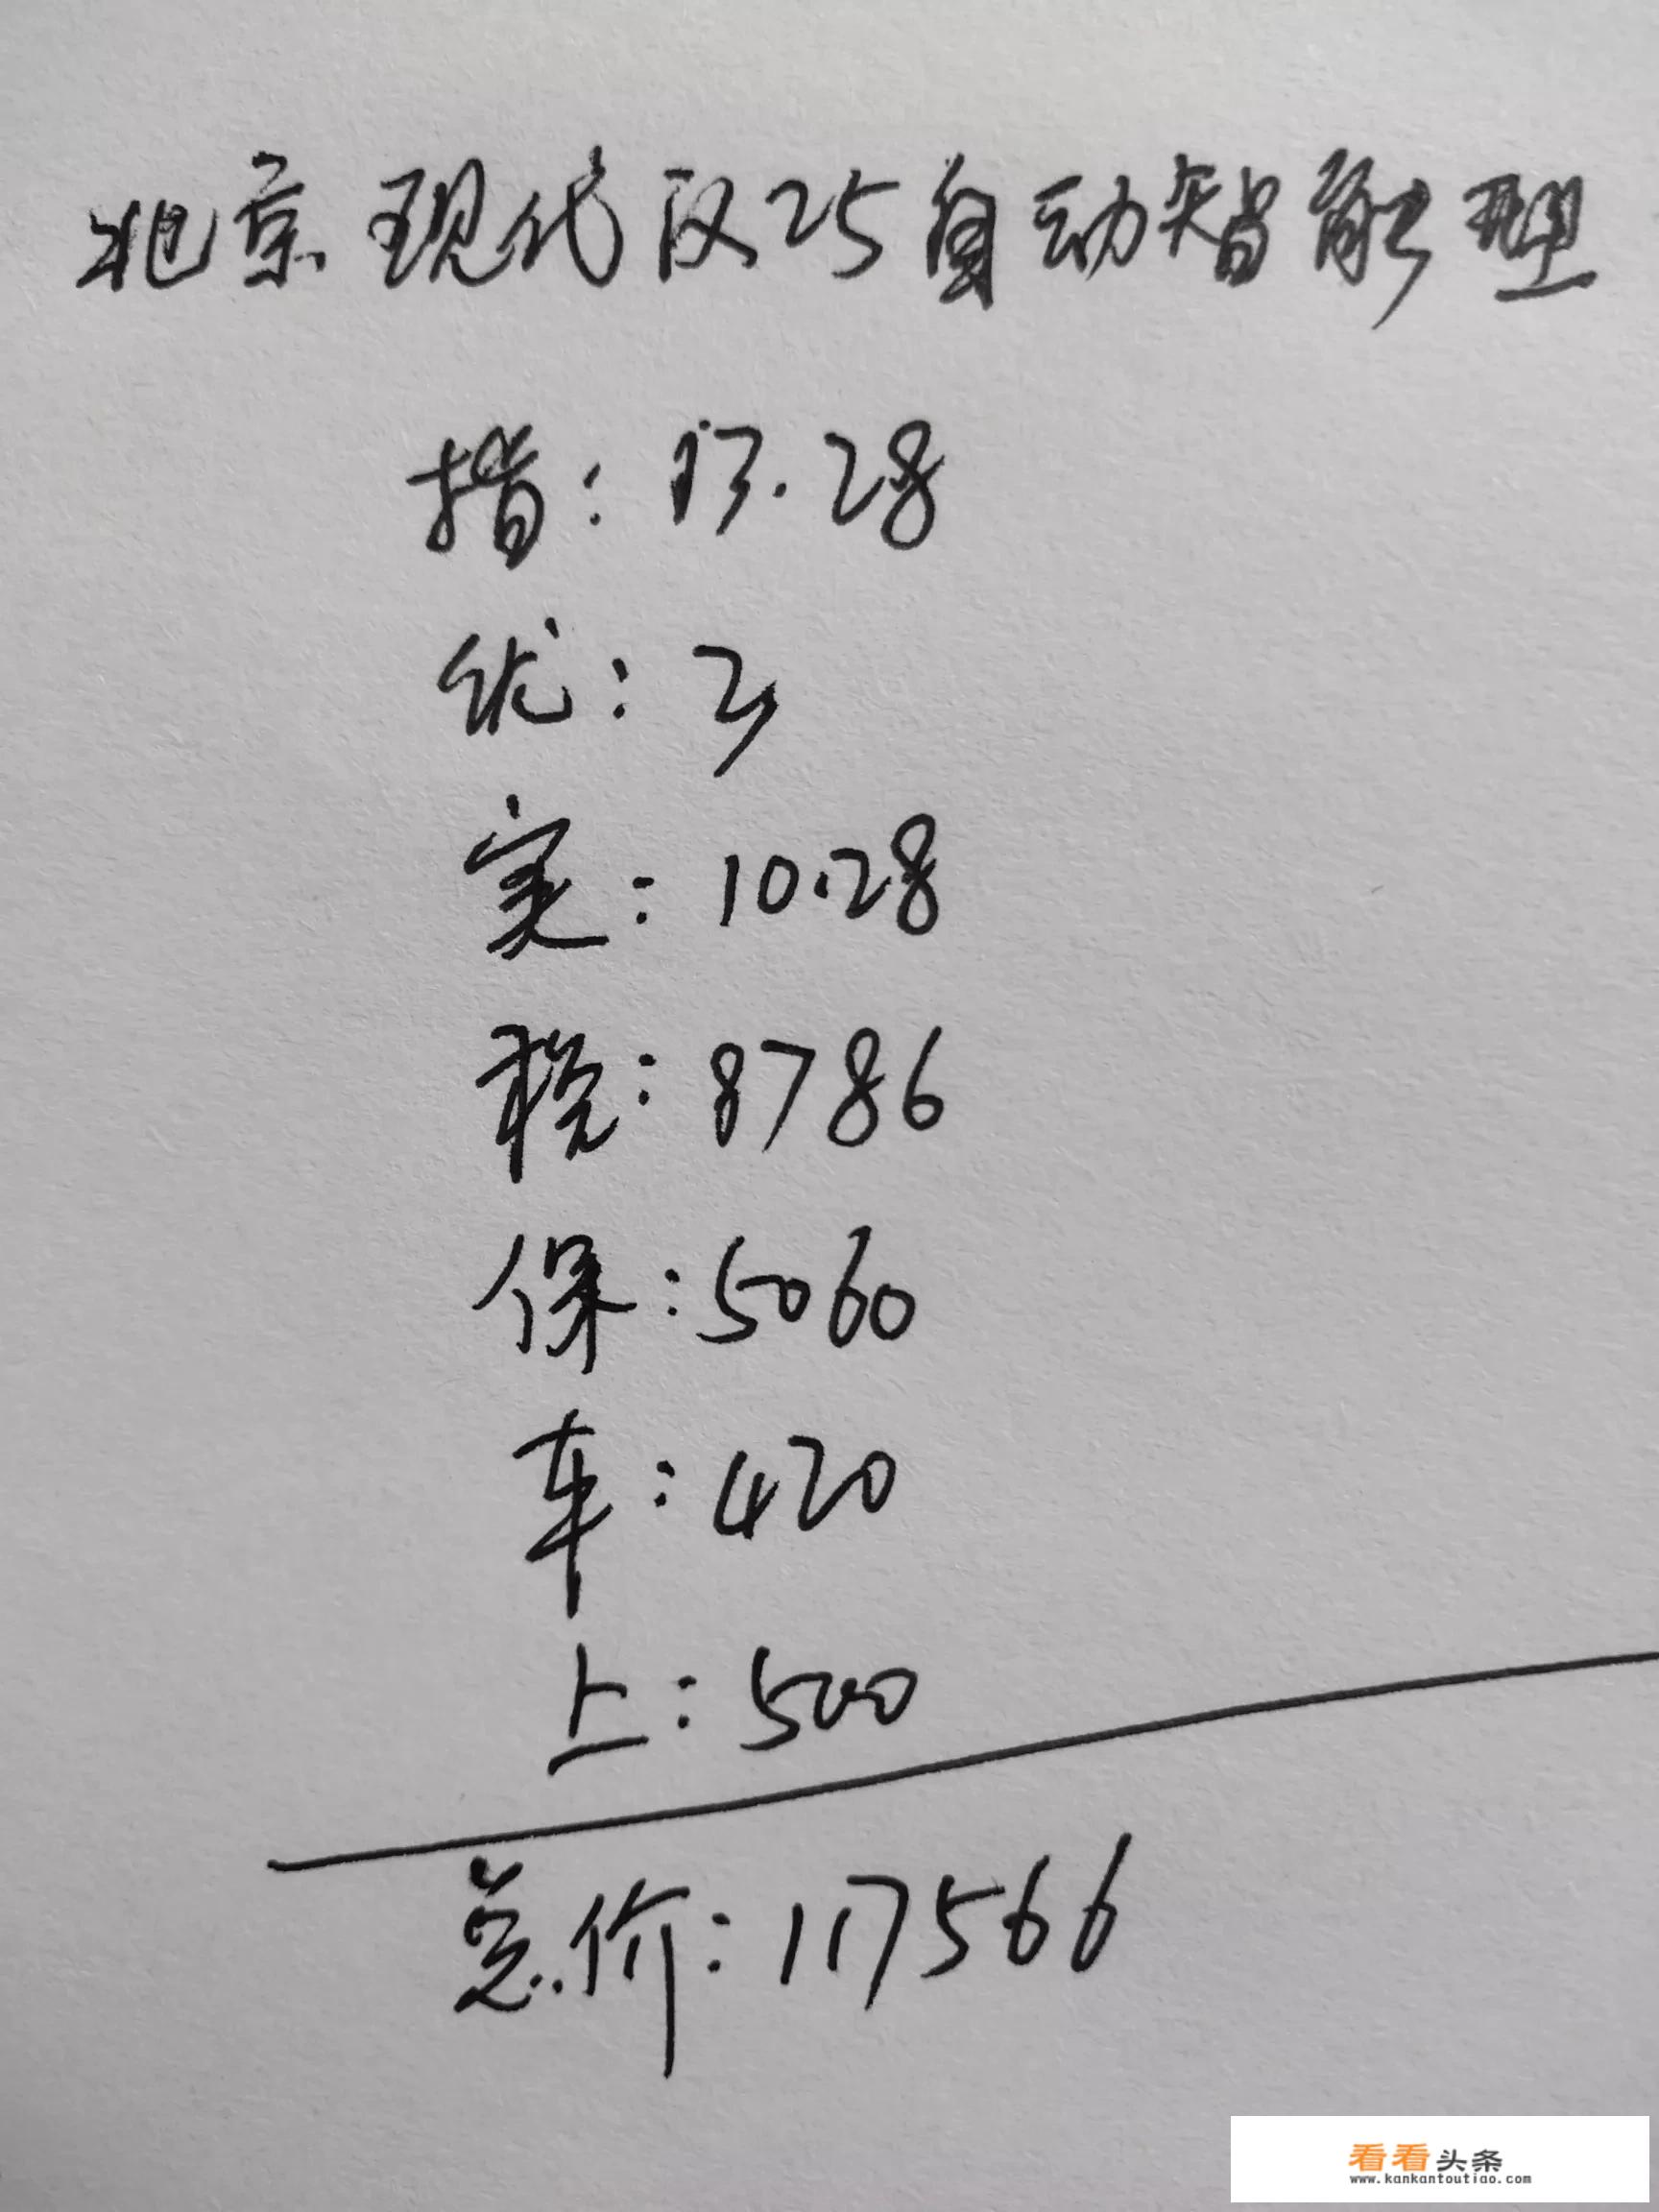 北京现代ix25自动智能型
指:13.28
优:3
实:10.28
税:8786
保:5060
车:420
上:500
总价:117566
看看头条
www.kankantoutiao.com